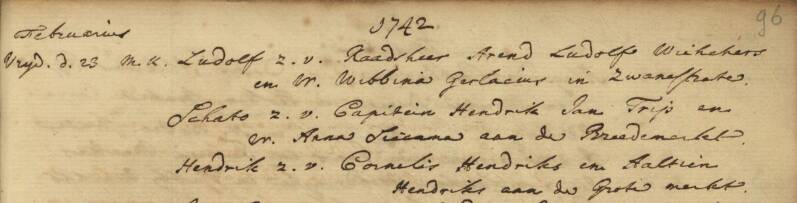 1742
96
Februarius
Vryd. d. 23 M. K. Ludolf z. v. Raadsheer Arend Ludolf Wichers
en Vr. Wibbina Gerlacius in Zwanestrate.
Schato z. v. Capitein Hendrik Jan Trip en
Vr. Anna Siccama aan de Breedemerkt.
Hendrik z. v. Cornelis Hendriks en Aaltien
Hendriks aan de Grote merkt.